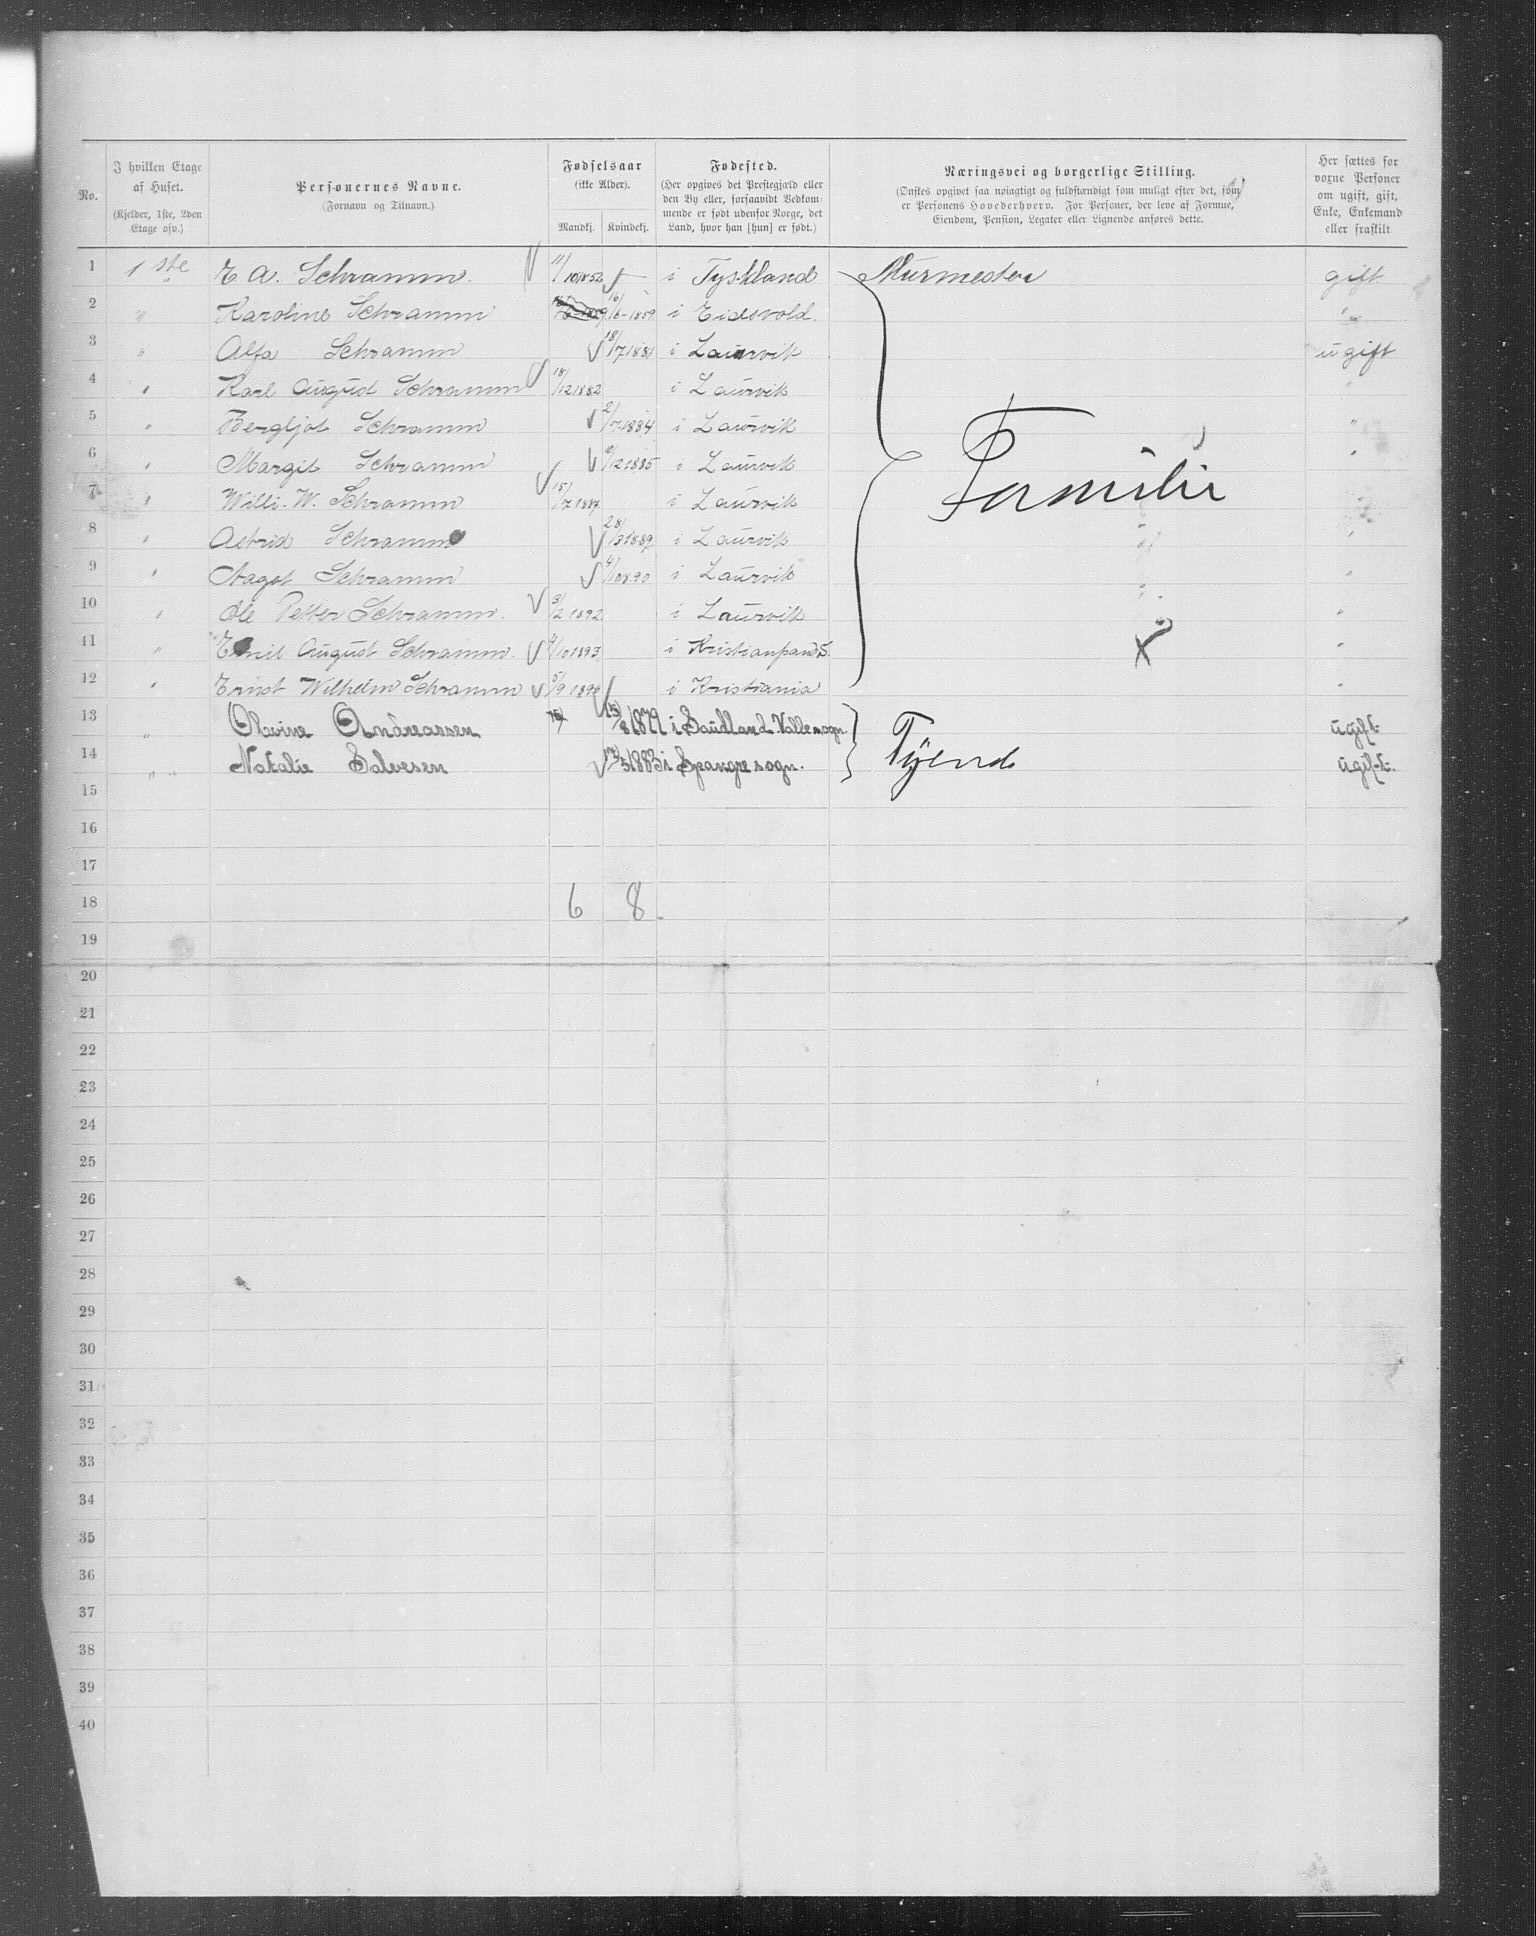 No.
I hvilken Etage af Huset. (Kjelder, 1ste, 2den Etage osv.)
Personernes Navne. (Fornavn og Tilnavn.)
Fødselsaar (ikke Alder). Mandkj. Kvindekj.
Fødested. (Her opgives det Prestegjæld eller den By eller, forsaavidt Vedkommende er født udenfor Norge, det Land, hvor han [hun] er født.)
Næringsvei og borgerlige Stilling. (Ønskes opgivet saa nøiagtigt og fuldstændigt som muligt efter det, som er Personens Hovederhverv. For Personer, der leve af Formue, Eiendom, Pension, Legater eller Lignende anføres dette.
Her sættes for voxne Personer om ugift, gift, Enke, Enkemand eller fraskilt
1 1 ste E. A. Schramm. 11/10 1852 i Tyskland Murmester gift
2 " Karoline Schramm 16/6-1859 i Eidsvold. "
3 " Alfa Schramm 18/7 1881 i Laurvik ugift
4 " Karl August Schramm 18/12 1882 i Laurvik "
5 " Bergljot Schramm 2/7-1884 i Laurvik "
6 " Margit Schramm /12 1885 i Laurvik "
Familie
7 " Willi. W. Schramm 15/7 1887 i Laurvik "
8 " Astrid Schramm 28/3 1889 i Laurvik "
9 " Aagot Schramm 4/10 1890 i Laurvik "
10 " Ole Petter Schramm. 3/2 1892 i Laurvik "
11 " Emil August Schramm. 4/10 1893 i Kristiansand S. "
12 " Ernst Wilhelm Schramm 5/9 1896 i Kristiania "
13 " Olovine Andreassen 15/8 1879 i Saudland Valle sogn. ugift.
14 " " Natalie Salvesen 17/5 1883 i Spangre sogn. Tyende ugift.
15
16
17
18 6 8.
19
20
21
22
23
24
25
26
27
28
29
30
31
32
33
34
35
36
37
38
39
40